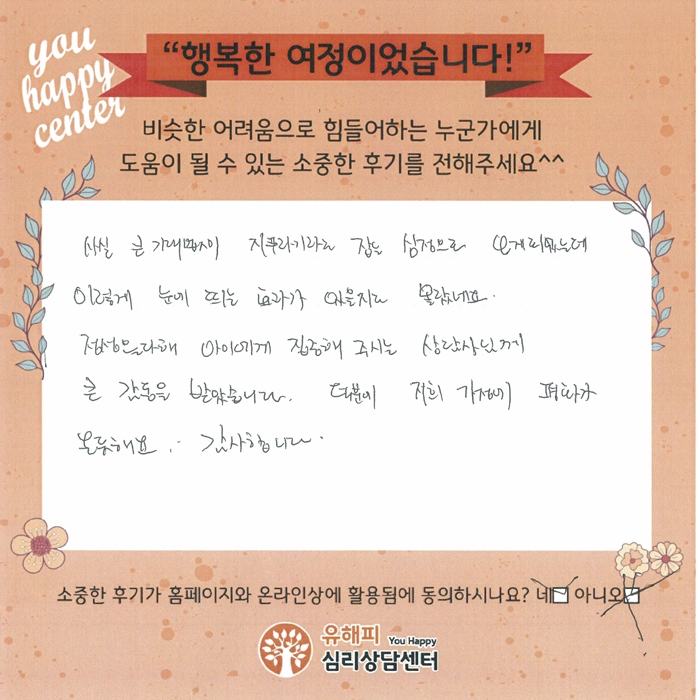 you
happy
center
“행복한 여정이었습니다!”
비슷한 어려움으로 힘들어하는 누군가에게
도움이 될 수 있는 소중한 후기를 전해주세요^^
사실 큰 기대없이 지푸라기라도 잡는 심정으로 오게되었는데
이렇게 눈에 띄는 효과가 있을지는 몰랐네요.
정성을다해 아이에게 집중해 주시는 상담사님께
큰 감동을 받았습니다. 덕분에 저희 가정에 평화가
감사합니다.
소중한 후기가 홈페이지와 온라인상에 활용됨에 동의하시나요? 네 아니오
유해피 You Happy
심리상담센터